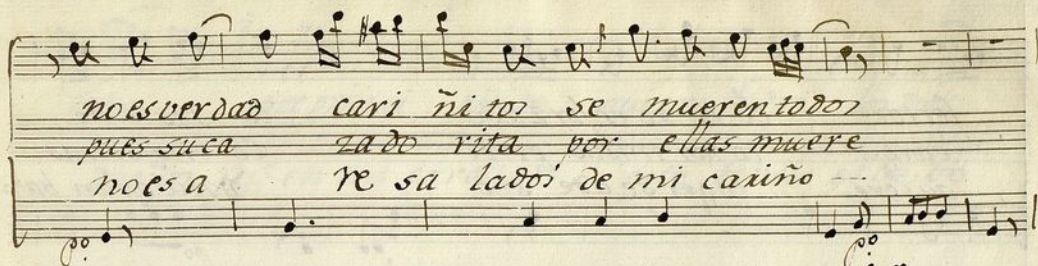 no es verdad cari ñi tos se mueren todos
pues su ca za do rita por ellas muere
no es a re sa lados de mi cariño
po
po